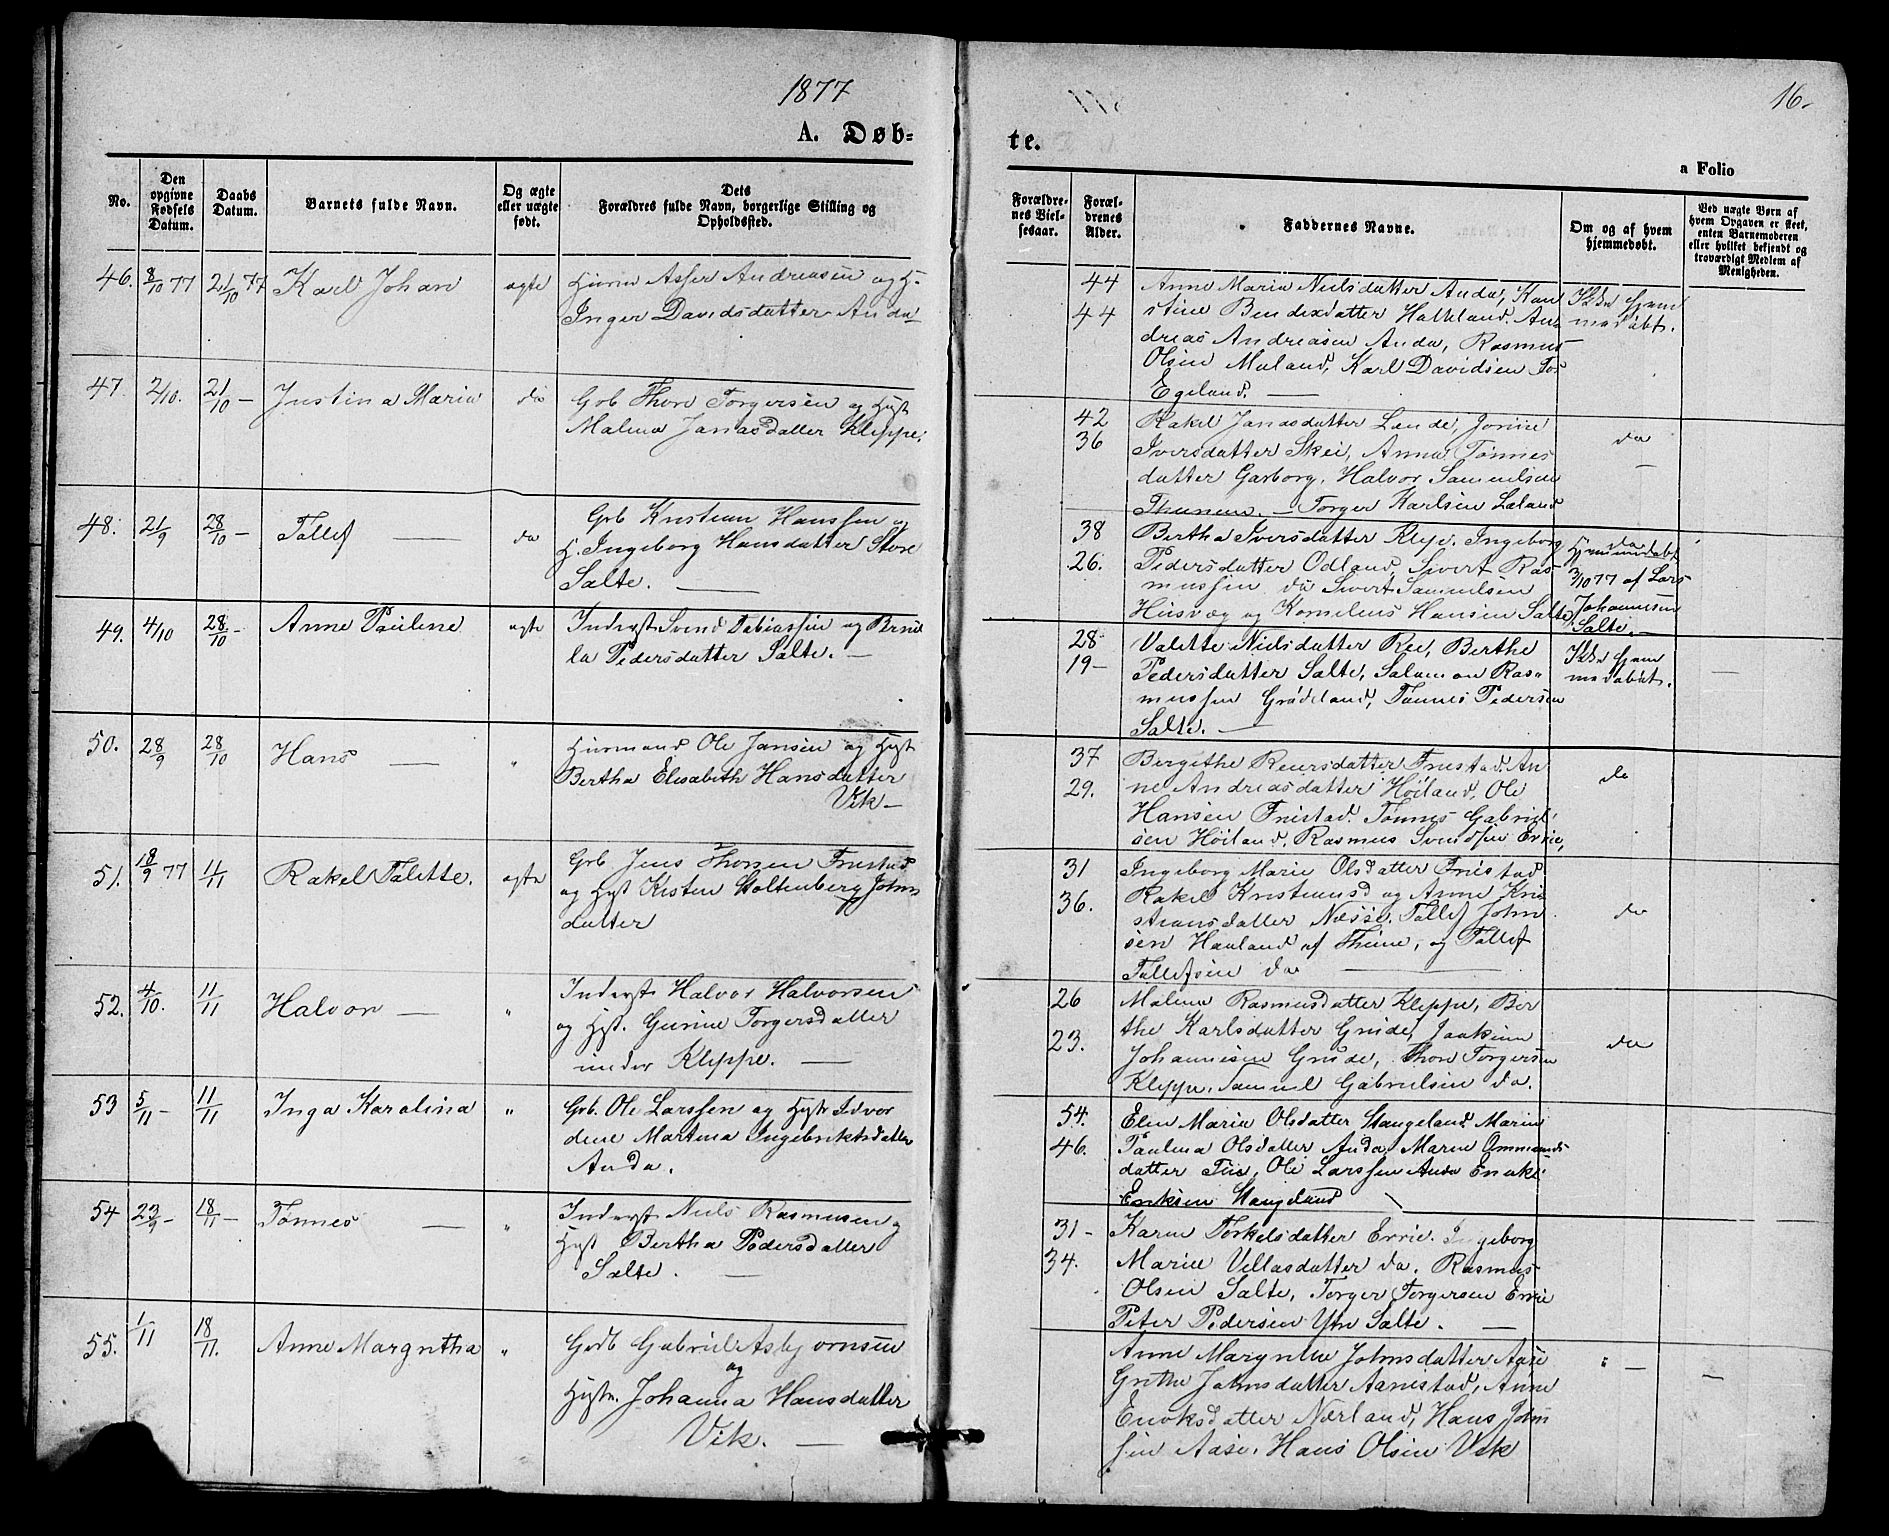 1877
16-
A. Døb-
te.
a Folio
No.
Den
opgivne
Fødsels
Datum.
Daabs
Datum.
Barnets fulde Navn.
Og ægte
eller uægte
født.
Dets
Forældres fulde Navn, borgerlige Stilling og
Opholdssted.
Forældre-
nes Viel-
sesaar.
Foræl-
drenes
Alder.
Faddernes Navne.
Om og af hvem
hjemmedøbt.
Ved uægte Børn af
hvem Opgaven er skeet,
enten Barnemoderen
eller hvilket bekjendt og
troværdigt Medlem af
Menigheden.
46. 8/10 77 21/10 77 Karl Johan ægte Huusm Asser Andreasen og H.
Inger Davidsdatter Anda
44
44
Anne Maria Nielsdatter Anda, Kan
stine Bendixdatter Hatteland. An
dreas Andreasen Anda, Rasmus
Olsen Meland, Karl Davidsen Tos
Egeland. —
Ikke hjem
medøbt.
47. 2/10. 21/10 — Justina Maria do Gbr Thore Torgersen og Hust
Malena Janasdatter Kleppe.
42
36
Rakel Janasdatter Lende, Jorine
Iversdatter Skei, Anna Tønnes
datter Garborg, Halvor Samuelsen
Thunem. — Torger Karlsen Laland
do
—
48. 21/9 28/10 — Tollef — do Gbr Kristian Hanssen og
H. Ingeborg Hansdatter Store
Salte. —
38
26.
Bertha Iversdatter Klep. Ingeborg
Pedersdatter Odland, Sivert Ras-
mussen do Sivert Samuelsen
Husvæg og Kornelius Hansen Salte
do
Hjemmedøbt
2/10 77 af Lars
Johannesen
Salte. —
49. 4/10 28/10 — Anne Pauline ægte Inderst Svend Tobiassen og Bernil
la Pedersdatter Salte. —
28
19 —
Valette Nielsdatter Ree, Berthe
Pedersdatter Salte, Salamon Ras-
mussen Grødeland, Tønnes Pedersen
Salte. —
Ikke hjem
medøbt.
—
50. 28/9 28/10 Hans — " Huusmand Ole Jansen og Hust
Bertha Elisabeth Hansdatter
Vik —
37
29.
Bergithe Reiersdatter Friestad. An
ne Andreasdatter Høiland, Ole
Hansen Friestad. Tønnes Gabriel-
sen Høiland, Rasmus Svendsen Errie,
do
51. 18/9 77 11/11 Rakel Talette. ægte Gbr Jens Thorsen Friestad
og Hust Kisten Stoltenberg Johns
datter
31
36.
Ingeborg Marie Olsdatter Friestad
Rakel Kristiansd og Anne Kri
stiansdatter Næsse. Tollef John
sen Hauland af Thime, og Tollef
Tollefsen do —
do
52. 4/10. 11/11 Halvor — " Inderst Halvor Halvorsen
og Hust. Gurine Torgersdatter
under Kleppe. —
26
23.
Malena Rasmusdatter Kleppe, Ber
the Karlsdatter Grude, Joakim
Johannesen Grude, Thore Torgersen
Kleppe. Samuel Gabrielsen do.
do
53 5/11 — 11/11 Inga Karolina " Gbr. Ole Larssen og Hust
Martina Ingebriktsdatter
Anda.
54.
46.
Elen Maria Olsdatter Stangeland. Maren
Paulina Olsdatter Anda. Maren Ommunds
datter Tue, Ole Larssen Anda
Eriksen Stangeland
54 23/9 — 18/11 — Tønnes — " Inderst Niels Rasmussen og
Hust Bertha Pedersdatter
Salte. —
31 —
34.
Karen Torkelsdatter Errie. Ingeborg
Marie Villasdatter do. Rasmus
Olsen Salte, Torger Torgersen Errie
Peter Pedersen Ytre Salte. —
55. 1/11 18/11. Anne Margretha " Gbr Gabriel Asbjørnsen
og
Hust. Johanna Hansdatter
Vik. —
Anne Margrethe Johnsdatter Aase
Grethe Johnsdatter Aanestad, Anne
Enoksdatter Nærland, Hans John
sen Aase. Hans Olsen Vik
" —
—